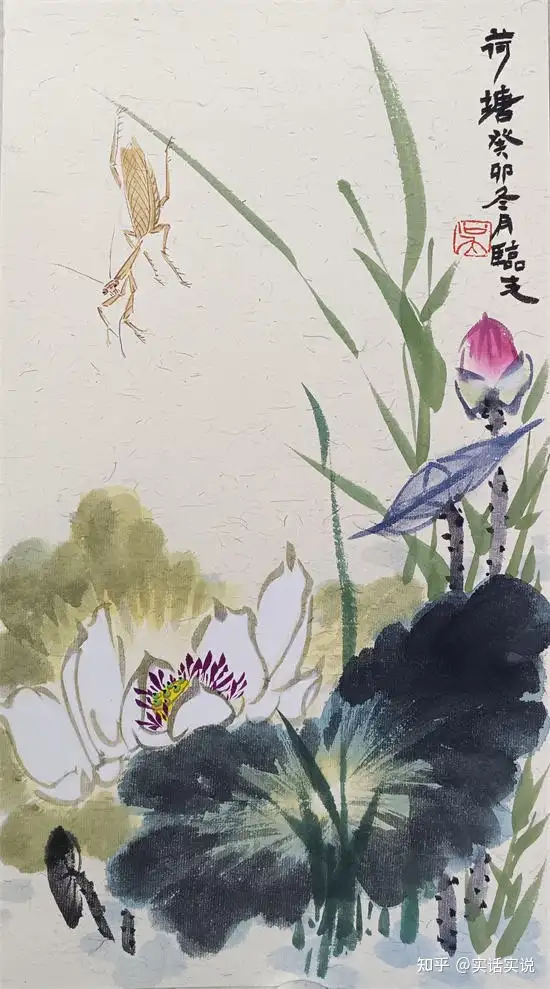 荷塘癸卯冬月臨
吴
知乎 @实话实说